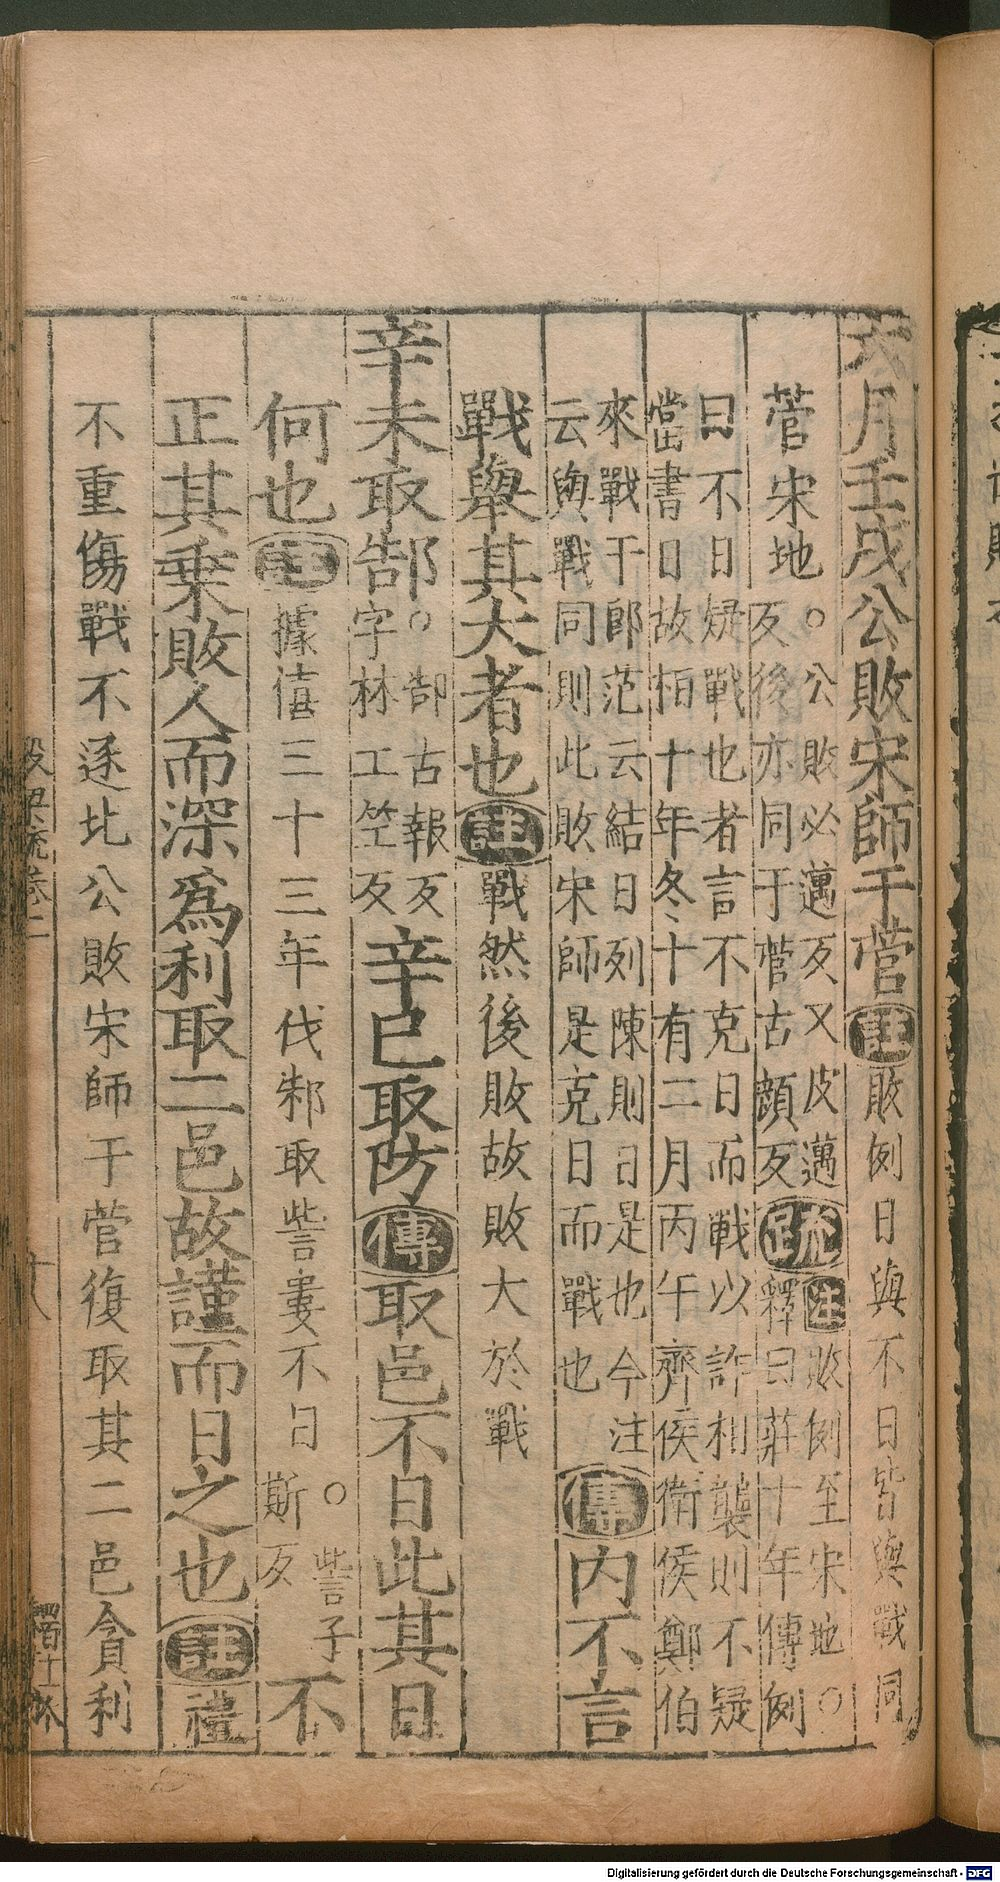 六月壬戌公敗宋師于菅註敗例日與不日皆與戰同
菅宋地○公敗必邁反又皮邁反後亦同于菅古顏反疏注敗例至宋地○釋曰莊十年傳例
曰不日疑戰也者言不克日而戰以詐相襲則不疑當書日故栢十年冬十有二月丙午齊侯衛侯鄭伯
來戰于郎范云結日列陳則日是也今注云與戰同則此敗宋師是克日而戰也傳內不言
戰舉其大者也註戰然後敗故敗大於戰
辛未取郜○郜古報反字林工笠反辛巳取防傳取邑不日此其日
何也註據僖三十三年伐邾取訾婁不日○訾子斯反不
正其乗敗人而深爲利取二邑故謹而日之也註禮
不重傷戰不逐北公敗宋師于菅復取其二邑貪利
穀梁疏卷二 十八
Digitalisierung gefördert durch die Deutsche Forschungsgemeinschaft - DFG